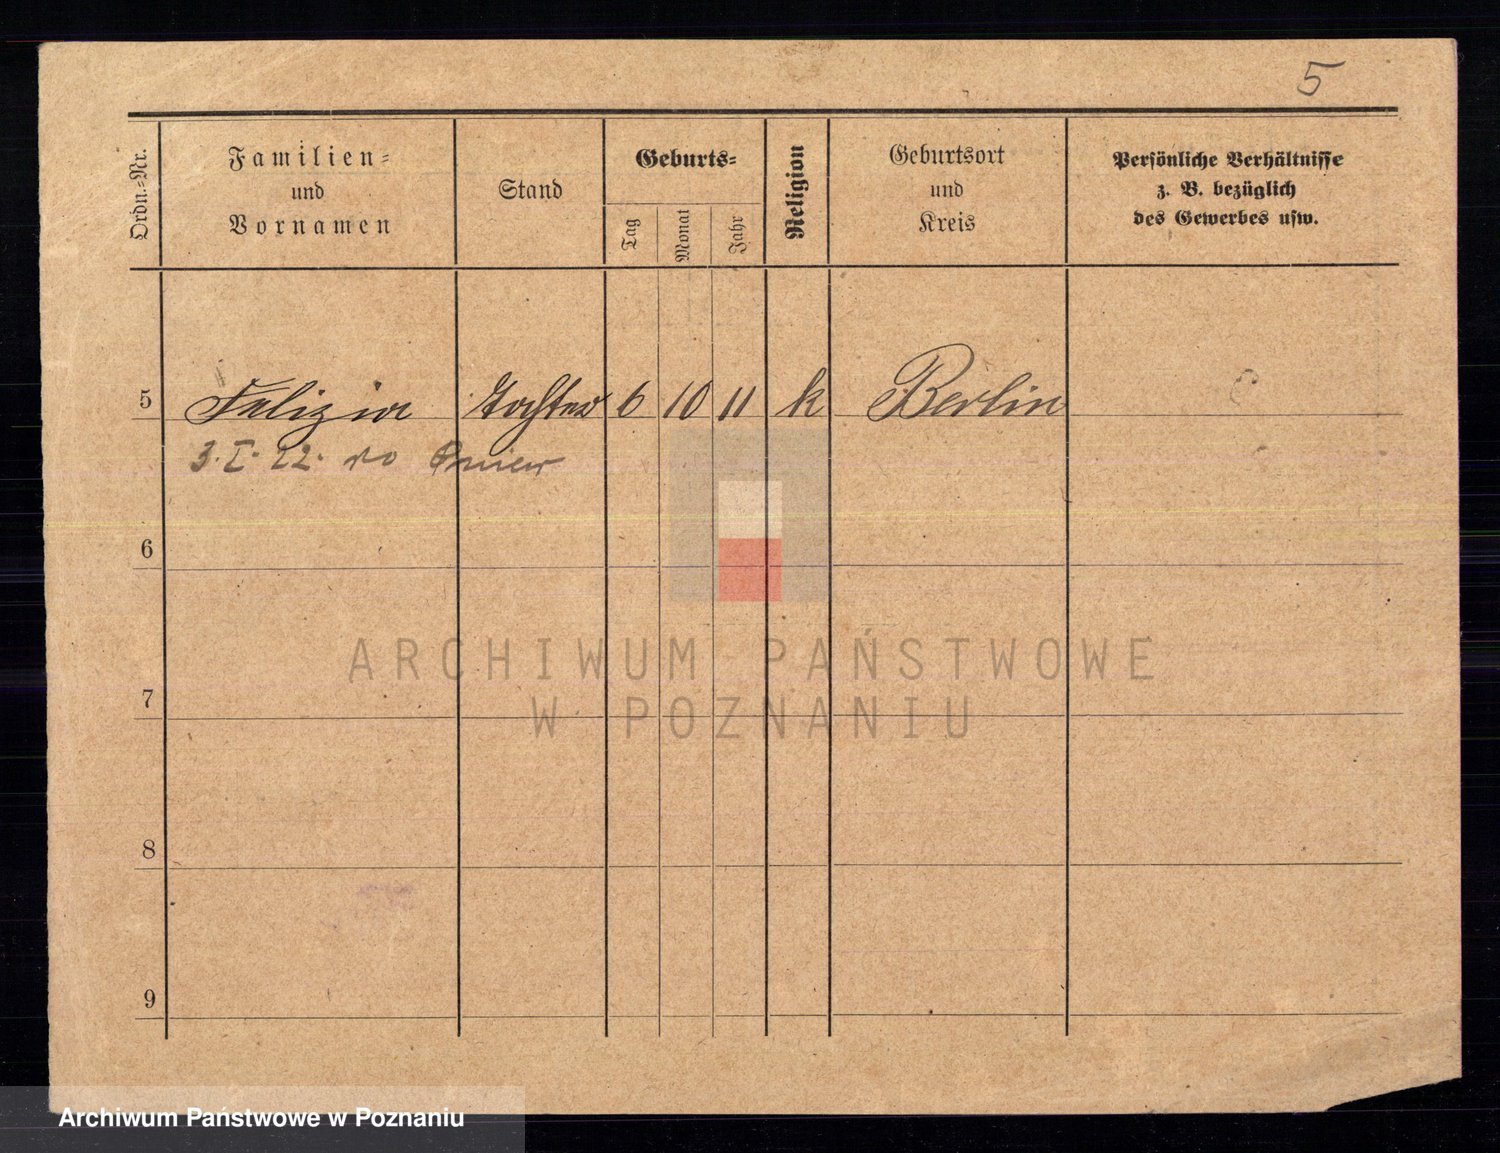 5
Ordn.-Nr.
Familien-
und
Vornamen
Stand
Geburts-
Tag
Monat
Jahr
Religion
Geburtsort
und
Kreis
Persönliche Verhältnisse
z. B. bezüglich
des Gewerbes usw.
5 Felizia Tochter 6 10 11 k Berlin
3. I. 22. do
6
7
8
9
ARCHIWUM PAŃSTWOWE
W POZNANIU
Archiwum Państwowe w Poznaniu